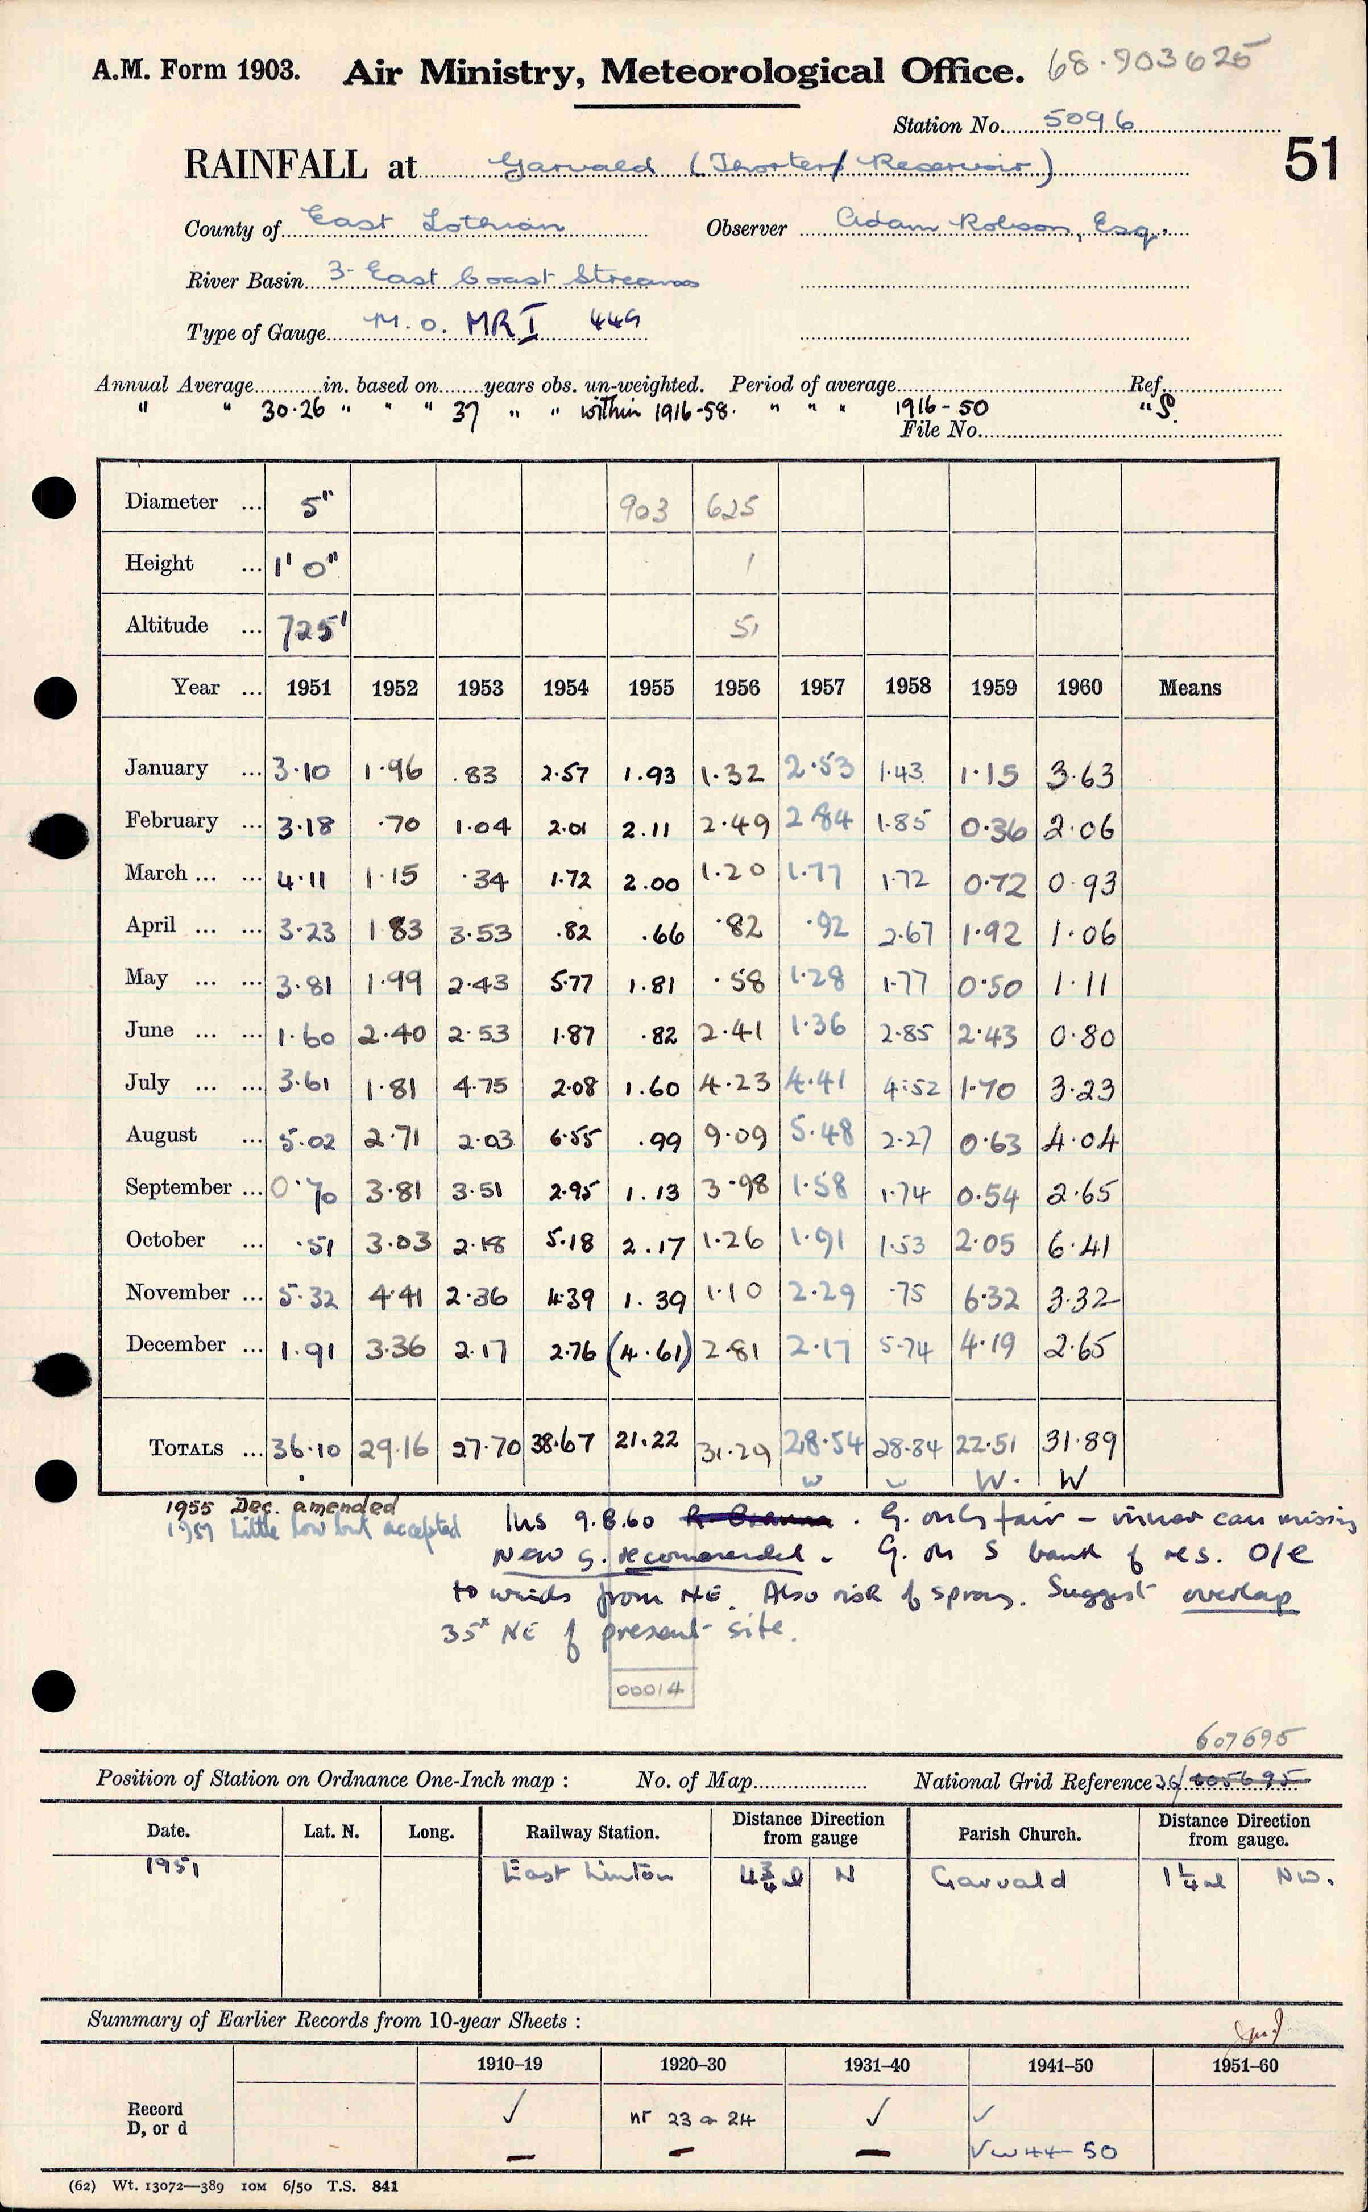 A.M. Form 1903. Air Ministry, Meteorological Office. 68.903625
Station No. 5096
51
RAINFALL at Garvald (Thorters Reservoir)
County of East Lothian Observer Adam Robson, Esq.
River Basin 3 East Coast Streams
Type of Gauge M.O. MR I 449
Annual Average in. based on years obs. un-weighted. Period of average Ref.
" " 30.26 " " " 37 " " within 1916-58. " " " 1916-50 " S.
File No.
Diameter ... 5" 903 625
Height ... 1' 0" 1
Altitude ... 725' 51
Year ... 1951 1952 1953 1954 1955 1956 1957 1958 1959 1960 Means
January ... 3.10 1.96 .83 2.57 1.93 1.32 2.53 1.43 1.15 3.63
February ... 3.18 .70 1.04 2.01 2.11 2.49 2.84 1.85 0.36 2.06
March ... ... 4.11 1.15 .34 1.72 2.00 1.20 1.77 1.72 0.72 0.93
April ... ... 3.23 1.83 3.53 .82 .66 .82 .92 2.67 1.92 1.06
May ... ... 3.81 1.99 2.43 5.77 1.81 .58 1.28 1.77 0.50 1.11
June ... ... 1.60 2.40 2.53 1.87 .82 2.41 1.36 2.85 2.43 0.80
July ... ... 3.61 1.81 4.75 2.08 1.60 4.23 4.41 4.52 1.70 3.23
August ... 5.02 2.71 2.03 6.55 .99 9.09 5.48 2.27 0.63 4.04
September ... 0.70 3.81 3.51 2.95 1.13 3.98 1.58 1.74 0.54 2.65
October ... .51 3.03 2.18 5.18 2.17 1.26 1.91 1.53 2.05 6.41
November ... 5.32 4.41 2.36 4.39 1.39 1.10 2.29 .75 6.32 3.32
December ... 1.91 3.36 2.17 2.76 (4.61) 2.81 2.17 5.74 4.19 2.65
TOTALS ... 36.10 29.16 27.70 38.67 21.22 31.29 28.54 28.84 22.51 31.89
w w W. W
1955 Dec. amended
1959 Little low but accepted
Ins 9.8.60 . G. only fair - inner can missing
New G. recommended. G. on S bank of res. O/e
to winds from NE. Also risk of spray. Suggest overlap
35x NE of present site.
00014
607695
Position of Station on Ordnance One-Inch map : No. of Map National Grid Reference 36/ 605695
Date. Lat. N. Long. Railway Station. Distance Direction from gauge Parish Church. Distance Direction from gauge.
1951 East Linton 4¾ ml N Garvald 1¼ ml NW.
Summary of Earlier Records from 10-year Sheets :
1910-19 1920-30 1931-40 1941-50 1951-60
Record D, or d ✓ nr 23 a 24 ✓ ✓
50
(62) Wt. 13072—389 10M 6/50 T.S. 841